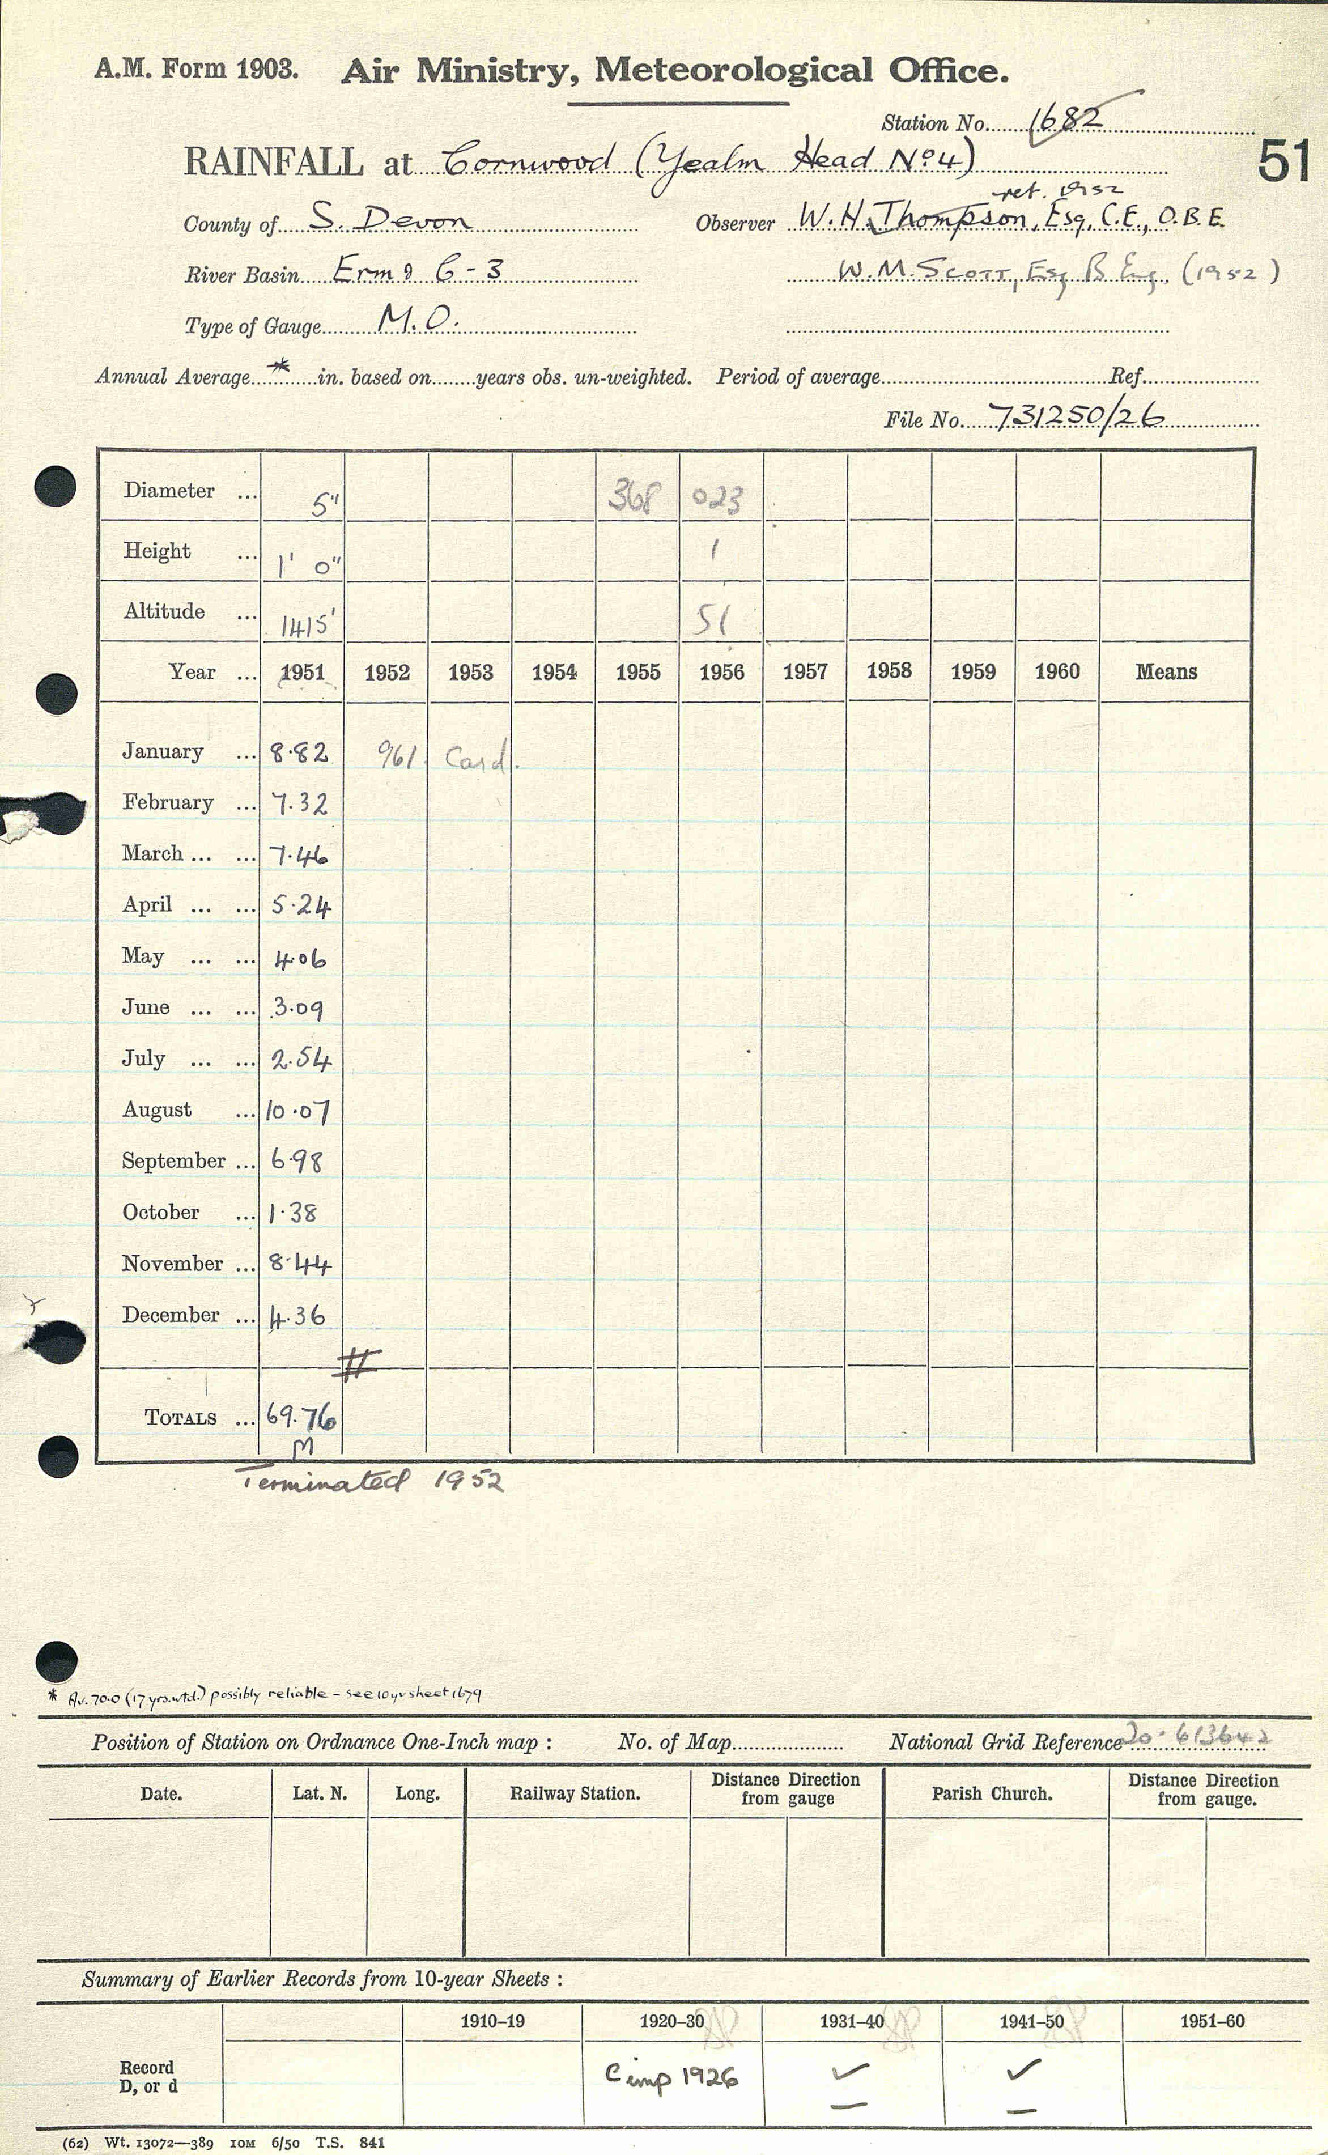 A.M. Form 1903. Air Ministry, Meteorological Office.
Station No. 1682
RAINFALL at Cornwood (Yealm Head Nº4)
51
ret. 1952
County of S. Devon Observer W.H. Thompson, Esq, C.E., O.B.E.
River Basin Erme 6-3 W.M. SCOTT, Esq B Eng. (1952)
Type of Gauge M.O.
Annual Average * in. based on years obs. un-weighted. Period of average Ref.
File No. 731250/26
Diameter ... 5" 368 023
Height ... 1' 0" 1
Altitude ... 1415' 51
Year ... 1951 1952 1953 1954 1955 1956 1957 1958 1959 1960 Means
January ... 8.82 961 Card.
February ... 7.32
March ... ... 7.46
April ... ... 5.24
May ... ... 4.06
June ... ... 3.09
July ... ... 2.54
August ... 10.07
September ... 6.98
October ... 1.38
November ... 8.44
December ... 4.36
#
TOTALS ... 69.76
M
Terminated 1952
* Av. 70.0 (17 yrs. wtd.) possibly reliable - see 10 yr sheet 1679
Position of Station on Ordnance One-Inch map : No. of Map National Grid Reference 20. 613642
Date. Lat. N. Long. Railway Station. Distance Direction from gauge Parish Church. Distance Direction from gauge.
Summary of Earlier Records from 10-year Sheets :
1910-19 1920-30 1931-40 1941-50 1951-60
Record D, or d C imp 1926 ✓ ✓
(62) Wt. 13072—389 10M 6/50 T.S. 841